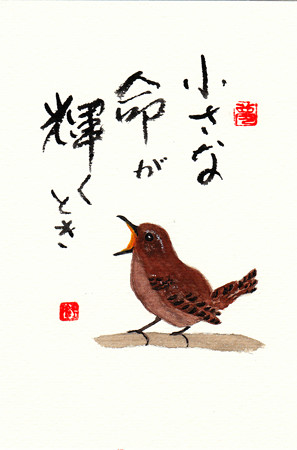 小さな
命が
輝くとき